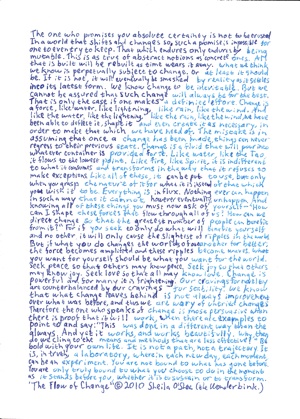 The one who promises you absolute certainty is not to be trusted
In a world that shifts and changes so, such a promise is impossible for
one to ever try to keep. That which endures only endures by being
mutable. This is as true of abstract notions as concrete ones. All
that is built will be rebuilt as time wears it away. What we think
we know is perpetually subject to change. Or at least it should
be. If it is not, it will eventually be smashed by reality as it sees
into its latest form. We know change to be inevitable. But we
cannot be assured that such change will always be for the best.
That is only the case if one makes a definitive effort. Change is
a force, like water, like lightning, like rain, like the wind. And
like the water, like the lightning, like the rain, like the wind, we have
been able to direct it, shape it and even create it as necessary, in
order to make that which we have need of. The mistake is in
assuming that once a change has been made, things can never
regress to their previous state. Change is a fluid that will pour into
whatever container is provided for it. Like water, like the Tao
it flows to the lowest point. Like fire, like Spirit, it is indifferent
to what it consumes and transforms in the way that it refuses to
make exceptions. Like all of these, it can be put to use, but only
when you grasp the nature of it for what it is instead of that which
you wish it to be. Everything is in flux. Nothing ever can happen
in such a way that it cannot, however eventually, unhappen. And
knowing all of these things you must now ask of yourself "How
can I shape these forces that flow through all of us? How can we
direct change so that the greatest number of people can benefit
from it?" For if you seek to only do what will benefit yourself
and no other it will only cause the slightest of ripples in its wake.
But if what you do changes the worlds of one another for better
its force becomes amplified and these ripples become waves. What
you want for yourself should be what you want for the world.
Seek peace so that others may know peace. Seek joy so that others
may know joy. Seek love so that all may know love. Change is
powerful and for many it is frightening. Our cravings for safety
are counterbalanced by our cravings for security. We know
that what change leaves behind is not always improvement
over what was before, and thus we are wary of untried changes
Therefore the one who speaks of change is more persuasive when
there is proof that it will work, when there are examples to
point to and say: "This was done in a different way than the
always. And yet it works, and works beautifully, why then
do we cling to the means and methods that are less effective?" Be
bold with your own life. It is not a path, not a trajectory. It
is, in truth, a laboratory, wherein each new day, each moment
can be an experiment. You are not bound to what has gone before.
You are only truly bound to what you choose to do in the moment
as it stands before you, whether it is to sustain or to transform.
"The Flow of Change" © 2010 Sheila O'Shea